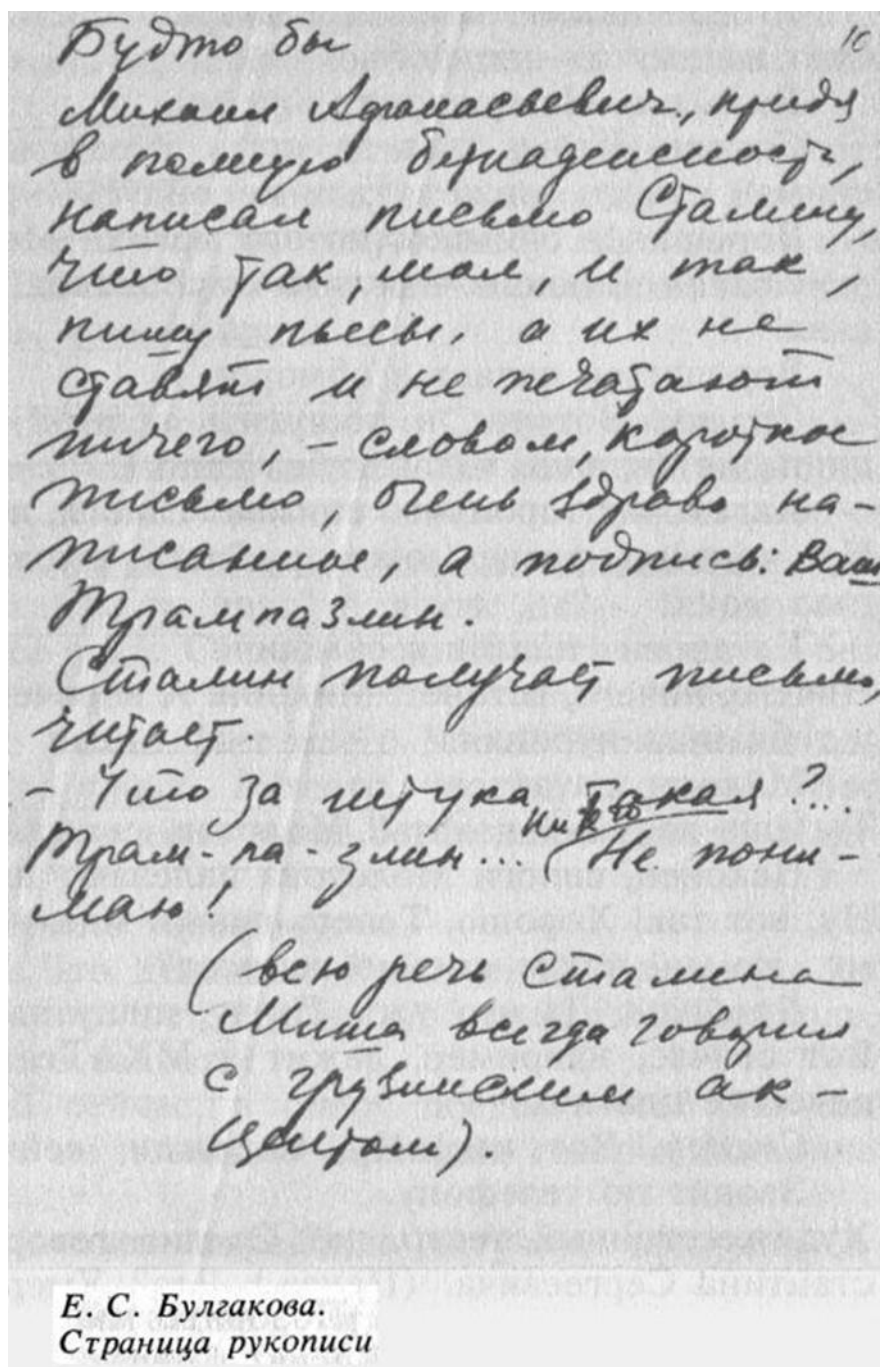 Будто бы
10
Михаил Афанасьевич, придя
в полную безнадежность,
написал письмо Сталину,
что так, мол, и так,
пишу пьесы, а их не
ставят и не печатают
ничего, – словом, короткое
письмо, очень здраво на-
писанное, а подпись: Ваш
Трампазлин.
Сталин получает письмо,
читает.
– Что за штука такая?...
Трам-па-злин... Ничего Не пони-
маю!
(всю речь Сталина
Миша всегда говорил
с грузинским ак-
центом).
Е. С. Булгакова.
Страница рукописи